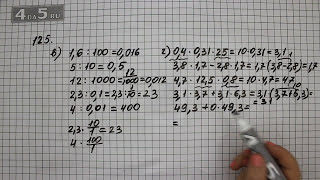 4 DA 5 RU
125.
в) 1,6 : 100 = 0,016
5 : 10 = 0,5
12 : 1000 = 12/1000 = 0,012
2,3 : 0,1 = 2,3 · 10 = 23
4 : 0,01 = 400
2,3 · 10/1 = 23
4 · 100/1
г) 0,4 · 0,31 · 25 = 10 · 0,31 = 3,1
3,8 · 1,7 - 2,8 · 1,7 = 1,7 (3,8 - 2,8) = 1,7
4,7 · 12,5 · 0,8 = 10 · 4,7 = 47
3,1 · 3,7 + 3,1 · 6,3 = 3,1 (3,7 + 6,3) =
= 31
49,3 + 0 · 49,3 =
=